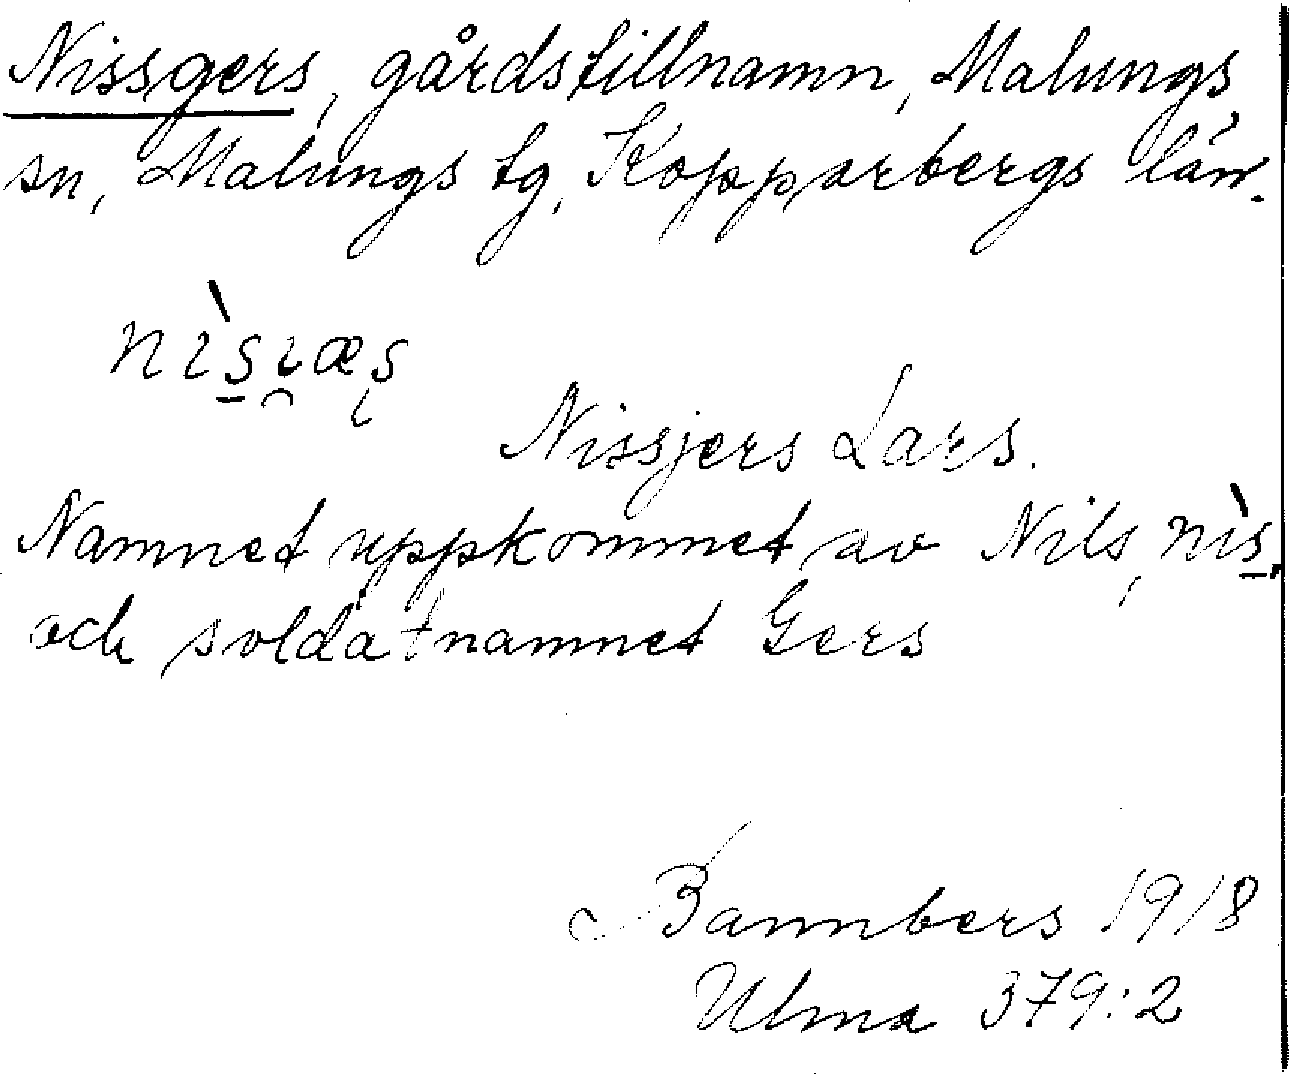 Nissgers, gårdstillnamn, Malungs
sn, Malungs tg, Kopparbergs län.
Nissjers Lars.
Namnet uppkommet av Nils, nìs̲,
och soldatnamnet Gers
Bannbers 1918
Ulma 379:2